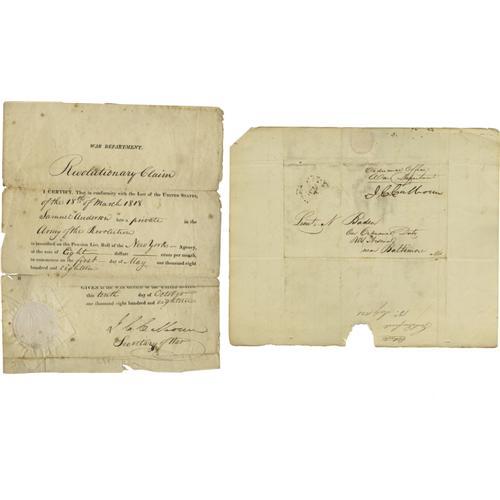 WAR DEPARTMENT.
Revolutionary Claim
I CERTIFY, That in conformity with the Law of the UNITED STATES,
of the 18th of March 1818
Samuel Anderson late a private in the
Army of the Revolution
is inscribed on the Pension List, Roll of the New York Agency,
at the rate of Eight dollars cents per month,
to commence on the first day of May one thousand eight
hundred and eighteen
GIVEN at the WAR OFFICE of the UNITED STATES,
this tenth day of October
one thousand eight hundred and eighteen
J C Calhoun
Secretary of War
Ordnance Office
War Department
J C Calhoun
Lieut. N Baden
On Ordnance Duty
near Baltimore